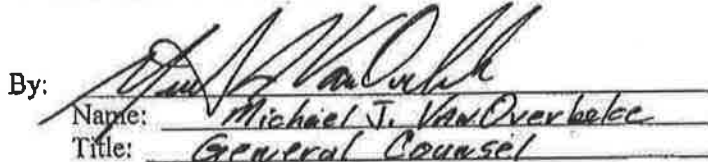 By:
Name: Michael J. VanOverbeke
Title: General Counsel